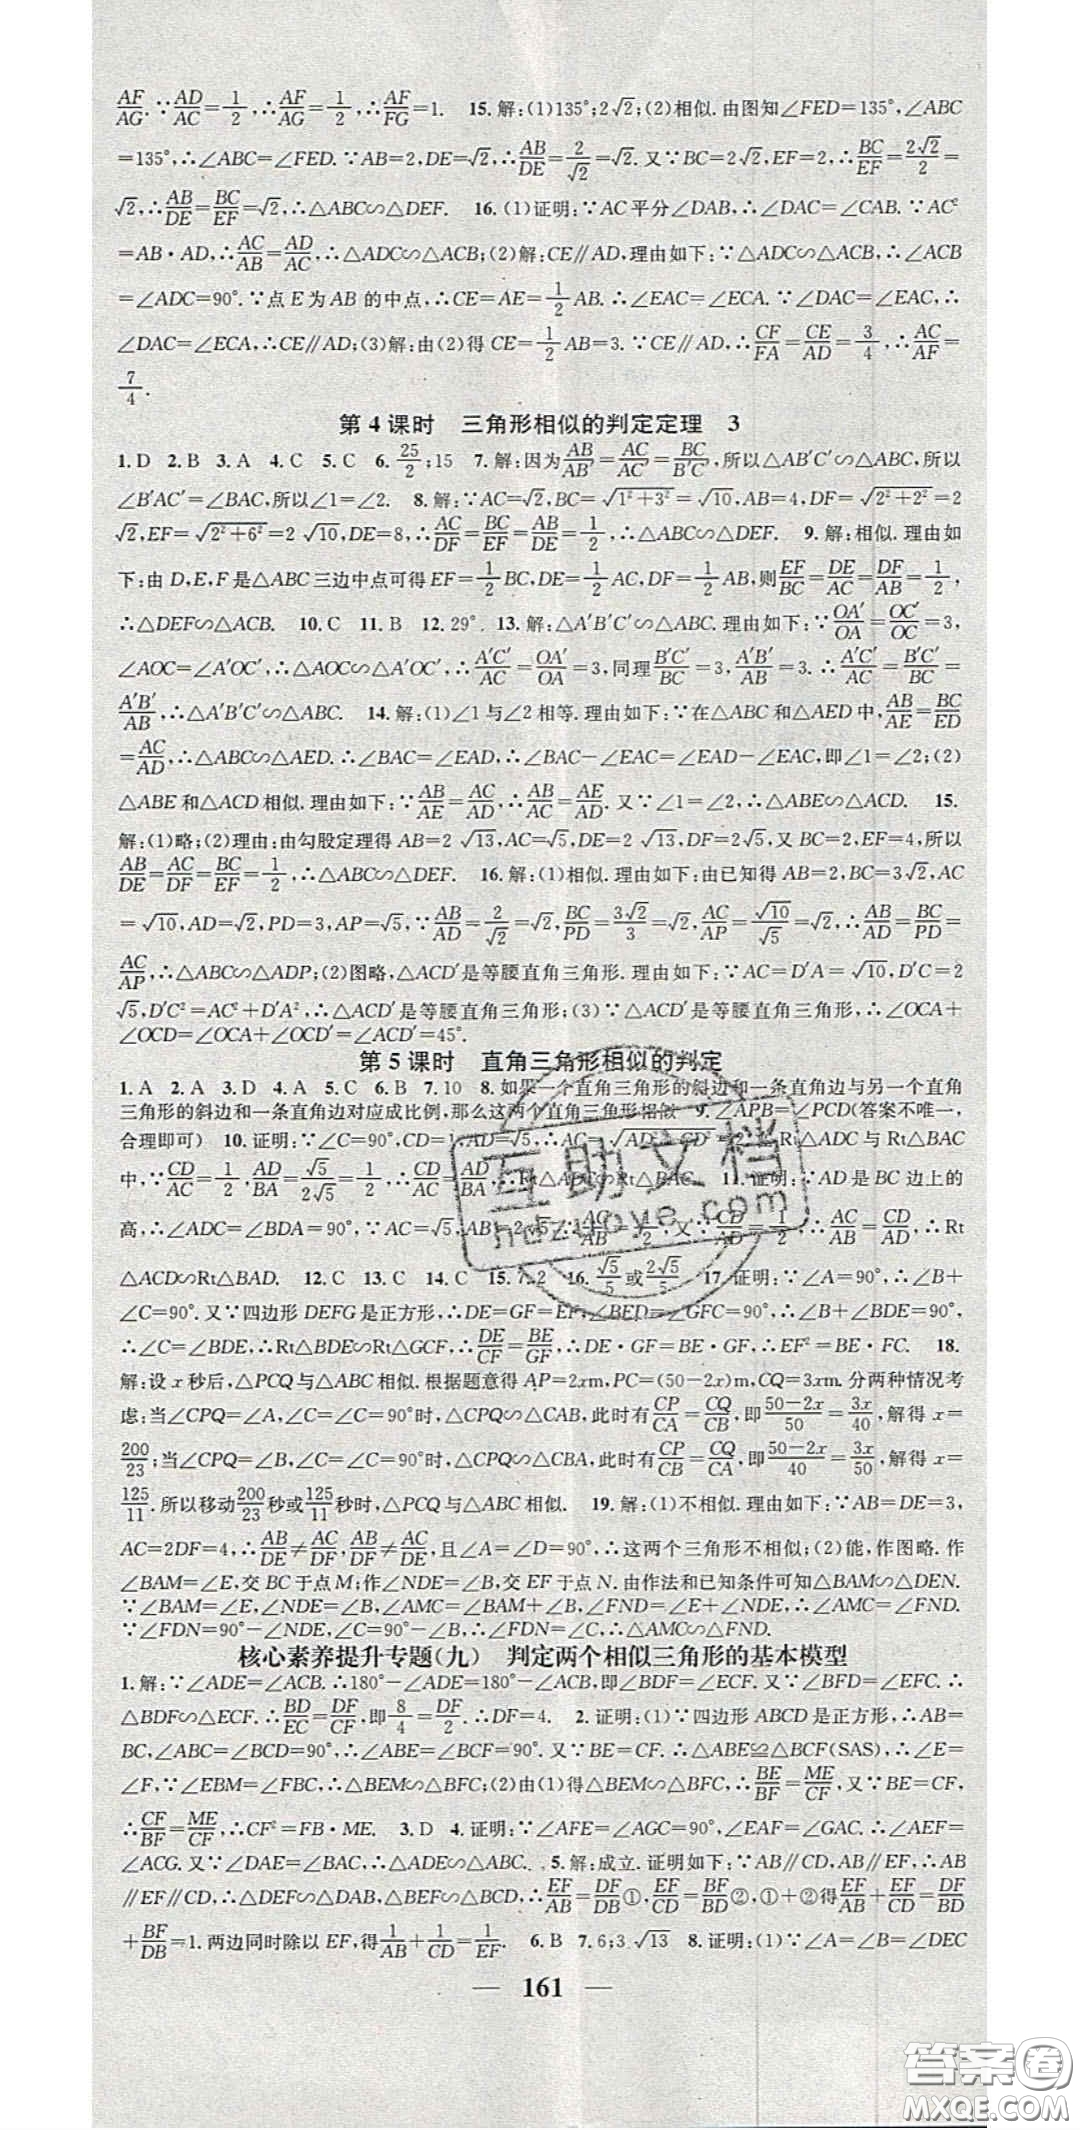 AF/AG.∵AD/AC=1/2,∴AF/AG=1/2,∴AF/FG=1. 15.解:(1)135°;2√2;(2)相似.由图知∠FED=135°,∠ABC
=135°,∴∠ABC=∠FED.∵AB=2,DE=√2,∴AB/DE=2/√2=√2.又∵BC=2√2,EF=2,∴BC/EF=2√2/2=
√2,∴AB/DE=BC/EF=√2,∴△ABC∽△DEF. 16.(1)证明:∵AC平分∠DAB,∴∠DAC=∠CAB.∵AC²
=AB·AD,∴AC/AB=AD/AC,∴△ADC∽△ACB;(2)解:CE∥AD.理由如下:∵△ADC∽△ACB,∴∠ACB
=∠ADC=90°.∵点E为AB的中点,∴CE=AE=1/2AB.∴∠EAC=∠ECA.∵∠DAC=∠EAC,∴
∠DAC=∠ECA,∴CE∥AD;(3)解:由(2)得CE=1/2AB=3.∵CE∥AD,∴CF/FA=CE/AD=3/4,∴AC/AF=
7/4.
第4课时 三角形相似的判定定理 3
1.D 2.B 3.A 4.C 5.C 6.25/2;15 7.解:因为AB/AB′=AC/AC′=BC/B′C′,所以△AB′C′∽△ABC,所以
∠B′AC′=∠BAC,所以∠1=∠2. 8.解:∵AC=√2,BC=√(1²+3²)=√10,AB=4,DF=√(2²+2²)=2
√2,EF=√(2²+6²)=2√10,DE=8,∴AC/DF=BC/EF=AB/DE=1/2,∴△ABC∽△DEF. 9.解:相似.理由如
下:由D,E,F是△ABC三边中点可得EF=1/2BC,DE=1/2AC,DF=1/2AB,则EF/BC=DE/AC=DF/AB=1/2,
∴△DEF∽△ACB. 10.C 11.B 12.29° 13.解:△A′B′C′∽△ABC.理由如下:∵OA′/OA=OC′/OC=3,
∠AOC=∠A′OC′,∴△AOC∽△A′OC′,∴A′C′/AC=OA′/OA=3,同理B′C′/BC=3,A′B′/AB=3.∴A′C′/AC=B′C′/BC=
A′B′/AB,∴△A′B′C′∽△ABC. 14.解:(1)∠1与∠2相等.理由如下:∵在△ABC和△AED中,AB/AE=BC/ED
=AC/AD,∴△ABC∽△AED.∴∠BAC=∠EAD,∴∠BAC-∠EAC=∠EAD-∠EAC,即∠1=∠2;(2)
△ABE和△ACD相似.理由如下:∵AB/AE=AC/AD,∴AB/AC=AE/AD.又∵∠1=∠2,∴△ABE∽△ACD. 15.
解:(1)略;(2)理由:由勾股定理得AB=2√13,AC=√5,DE=2√13,DF=2√5,又BC=2,EF=4,所以
AB/DE=AC/DF=BC/EF=1/2,∴△ABC∽△DEF. 16.解:(1)相似.理由如下:由已知得AB=2,BC=3√2,AC
=√10,AD=√2,PD=3,AP=√5,∵AB/AD=2/√2=√2,BC/PD=3√2/3=√2,AC/AP=√10/√5=√2,∴AB/AD=BC/PD=
AC/AP,∴△ABC∽△ADP;(2)图略,△ACD′是等腰直角三角形.理由如下:∵AC=D′A=√10,D′C=2
√5,D′C²=AC²+D′A²,∴△ACD′是等腰直角三角形;(3)∵△ACD′是等腰直角三角形,∴∠OCA+
∠OCD=∠OCA+∠OCD′=∠ACD′=45°.
第5课时 直角三角形相似的判定
1.A 2.A 3.D 4.A 5.C 6.B 7.10 8.如果一个直角三角形的斜边和一条直角边与另一个直角
三角形的斜边和一条直角边对应成比例,那么这两个直角三角形相似 9.∠APB=∠PCD(答案不唯一,
合理即可) 10.证明:∵∠C=90°,CD=1,AD=√5,∴AC=√(AD²-CD²)=2.在Rt△ADC与Rt△BAC
中,∵CD/AC=1/2,AD/BA=√5/2√5=1/2,∴CD/AC=AD/BA,∴Rt△ADC∽Rt△BAC. 11.证明:∵AD是BC边上的
高,∴∠ADC=∠BDA=90°,∵AC=√5,AB=2√5,∴AC/AB=1/2,又∵CD/AD=1/2,∴AC/AB=CD/AD,∴Rt
△ACD∽Rt△BAD. 12.C 13.C 14.C 15.7.2 16.√5/5或2√5/5 17.证明:∵∠A=90°,∴∠B+
∠C=90°.又∵四边形DEFG是正方形,∴DE=GF=EF,∠BED=∠GFC=90°,∴∠B+∠BDE=90°,
∴∠C=∠BDE,∴Rt△BDE∽Rt△GCF,∴DE/CF=BE/GF,∴DE·GF=BE·GF,∴EF²=BE·FC. 18.
解:设x秒后,△PCQ与△ABC相似.根据题意得AP=2xm,PC=(50-2x)m,CQ=3xm.分两种情况考
虑:当∠CPQ=∠A,∠C=∠C=90°时,△CPQ∽△CAB,此时有CP/CA=CQ/CB,即(50-2x)/50=3x/40,解得x=
200/23;当∠CPQ=∠B,∠C=∠C=90°时,△CPQ∽△CBA,此时有CP/CB=CQ/CA,即(50-2x)/40=3x/50,解得x=
125/11.所以移动200/23秒或125/11秒时,△PCQ与△ABC相似. 19.解:(1)不相似.理由如下:∵AB=DE=3,
AC=2DF=4,∴AB/DE≠AC/DF,AB/DF≠AC/DE,且∠A=∠D=90°,∴这两个三角形不相似;(2)能,作图略.作
∠BAM=∠E,交BC于点M;作∠NDE=∠B,交EF于点N.由作法和已知条件可知△BAM∽△DEN.
∵∠BAM=∠E,∠NDE=∠B,∠AMC=∠BAM+∠B,∠FND=∠E+∠NDE,∴∠AMC=∠FND.
∵∠FDN=90°-∠NDE,∠C=90°-∠B,∴∠FDN=∠C,∴△AMC∽△FND.
核心素养提升专题(九) 判定两个相似三角形的基本模型
1.解:∵∠ADE=∠ACB,∴180°-∠ADE=180°-∠ACB,即∠BDF=∠ECF.又∵∠BFD=∠EFC.∴
△BDF∽△ECF.∴BD/EC=DF/CF,即8/4=DF/2.∴DF=4. 2.证明:(1)∵四边形ABCD是正方形,∴AB=
BC,∠ABC=∠BCD=90°,∴∠ABE=∠BCF=90°.又∵BE=CF.∴△ABE≌△BCF(SAS),∴∠E=
∠F,∵∠EBM=∠FBC,∴△BEM∽△BFC;(2)由(1)得△BEM∽△BFC,∴BE/BF=ME/CF,又∵BE=CF,
∴CF/BF=ME/CF,∴CF²=FB·ME. 3.D 4.证明:∵∠AFE=∠AGC=90°,∠EAF=∠GAC.∴∠AEF=
∠ACG.又∵∠DAE=∠BAC,∴△ADE∽△ABC. 5.解:成立.证明如下:∵AB∥CD,AB∥EF,∴AB
∥EF∥CD,∴△DEF∽△DAB,△BEF∽△BCD,∴EF/AB=DF/DB①,EF/CD=BF/BD②,①+②得EF/AB+EF/CD=DF/BD
+BF/DB=1.两边同时除以EF,得1/AB+1/CD=1/EF. 6.B 7.6;3√13 8.证明:(1)∵∠A=∠B=∠DEC
— 161 —
互助文档
hdzuoye.com
答案圈
MXQE.COM